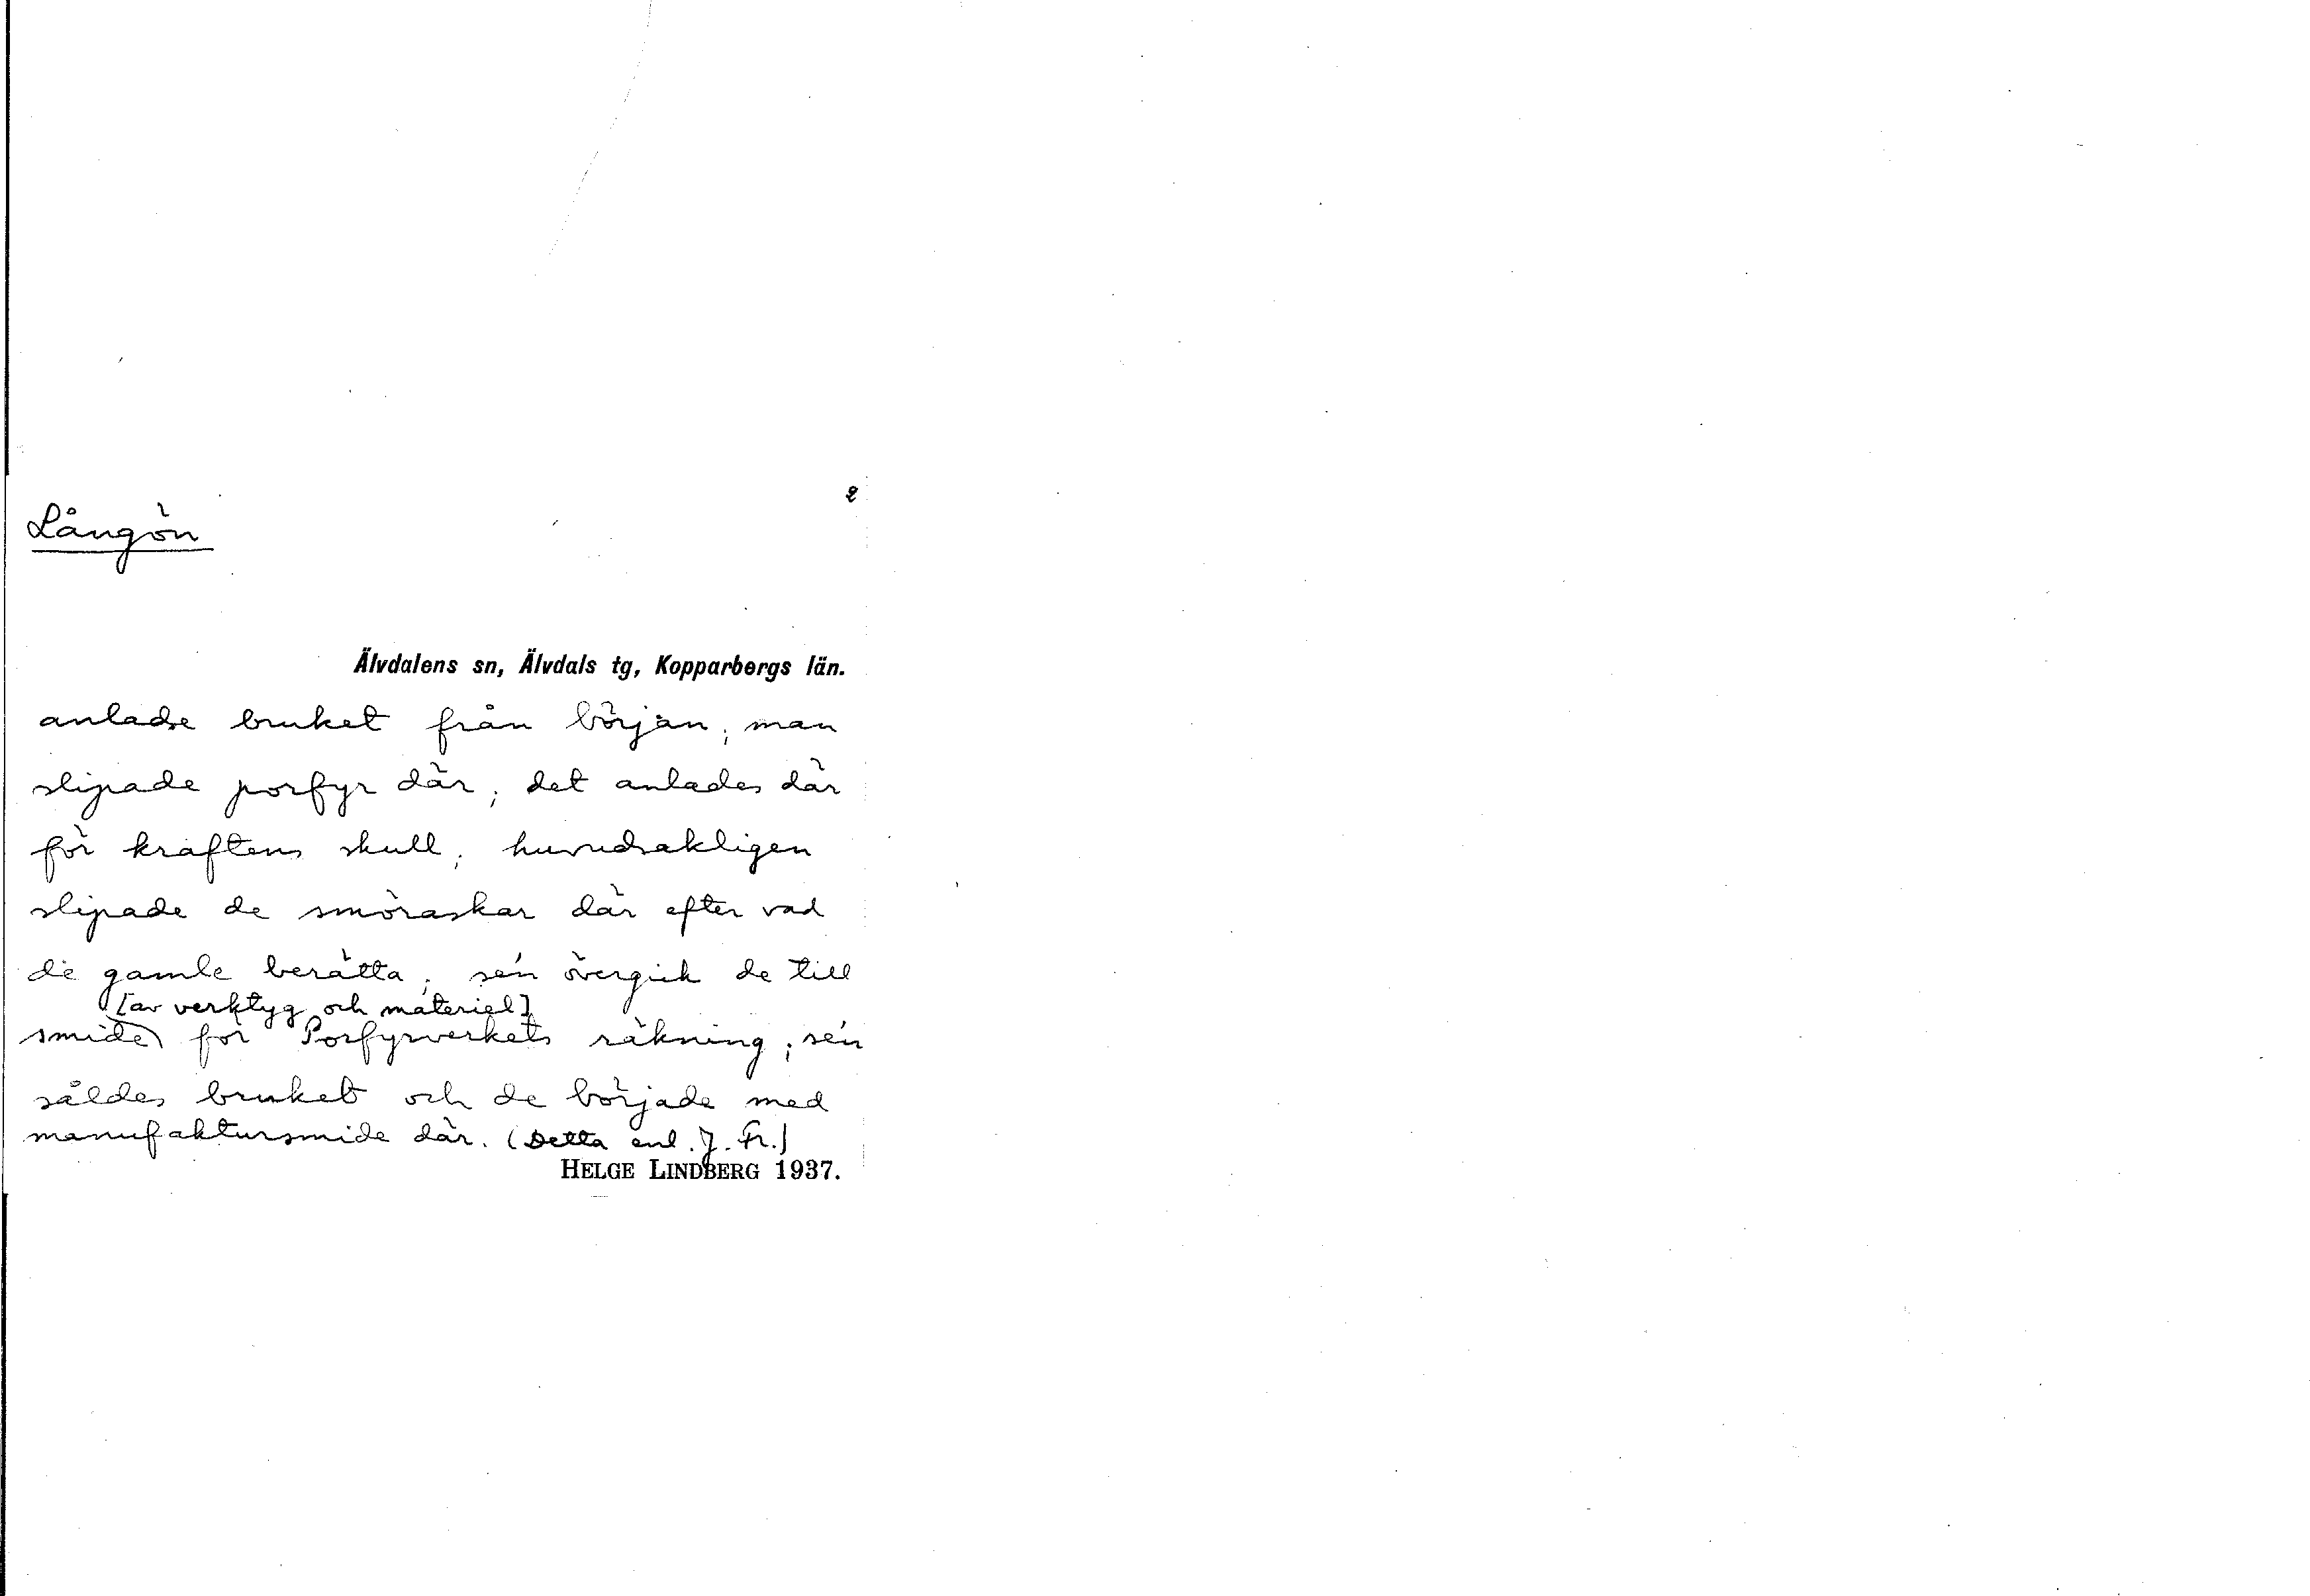 2
Långön
Älvdalens sn, Älvdals tg, Kopparbergs län.
anlade bruket från början; man
slipade porfyr där; det anlades där
för kraftens skull; huvudsakligen
slipade de smöraskar där efter vad
de gamle berätta; sén övergick de till
[av verktyg och materiel]
smide för Porfyrverkets räkning; sén
såldes bruket och de började med
manufaktursmide där. (Detta enl. J. Fr.)
HELGE LINDBERG 1937.